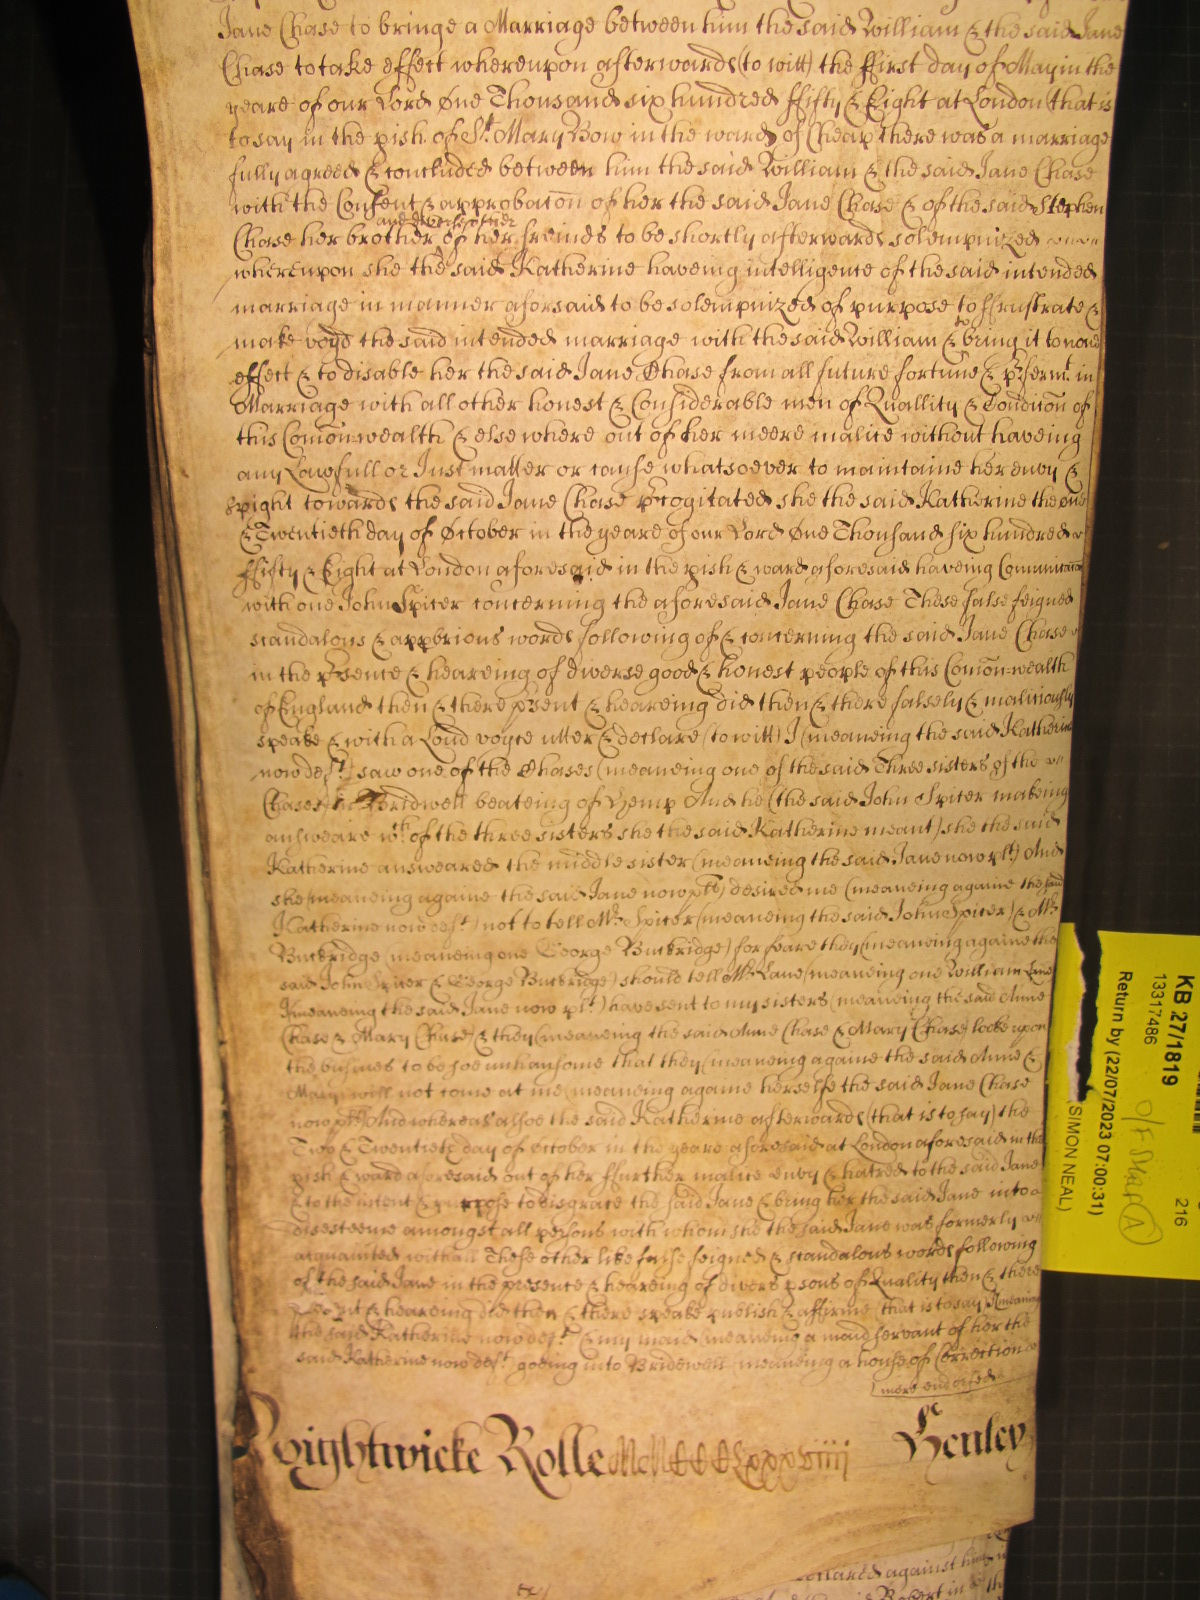 Jane Chase to bringe a Marriage betweene him the said William & the said Jane
Chase to take effect whereupon afterwards (to witt) the ffirst day of May in the
yeare of our Lord One Thousand six hundred ffifty & Eight at London that is
to say in the pish of St. Mary Bow in the ward of Cheap there was a marriage
fully agreed & concluded between him the said William & the said Jane Chase
with the Consent & approbacon of her the said Jane Chase & of the said Stephen
and
Chase her brother of her freinds to be shortly afterwards solempnized
whereupon she the said Katherine haveing intelligence of the said intended
marriage in manner aforsaid to be solempnized of purpose to ffrustrate &
make voyd the said intended marriage with the said William & to bring it to noe
effect & to disable her the said Jane Chase from all future fortune & pfermt. in
Marriage with all other honest & Considerable men of Quallity & Condicon of
this Comonwealth & else where out of her meere malice without haveing
any Lawfull or Just matter or cause whatsoever to maintaine her envy &
spight towards the said Jane Chase pcogitated she the said Katherine the one
& Twentieth day of October in the yeare of our Lord One Thousand six hundred
ffifty & Eight at London aforesaid in the pish & ward aforesaid haveing
with one John Spicer concerning the aforesaid Jane Chase These false feigned
scandalous & opprbrious words following of & concerning the said Jane Chase
in the psence & heareing of diverse good & honest people of this Comonwealth
of England then & there psent & heareing did then & there falsely & maliciously
speake & with a Loud voyce utter & declare (to witt) I (meaneing the said Katherine
now deft.) saw one of the Chases (meaneing one of the said Three sisters of the
Chases) in Bridwell beateing of Hemp And he (the said John Spicer makeing
answeare wch. of the three sisters she the said Katherine meant) she the said
Katherine answeared the middle sister (meaneing the said Jane now plt) And
she (meaneing againe the said Jane now plt) desired me (meaneing againe the said
Katherine now deft.) not to tell Mr. Spicer (meaneing the said John Spicer) & Mr.
Buckridge (meaneing one George Buckridge) for feare they (meaneing againe the
said John Spicer & George Buckridge) should tell Mr. Lane (meaneing one William Lane
I (meaneing the said Jane now plt.) have sent to my sisters (meaneing the said Anne
Chase & Mary Chase) & they (meaneing the said Anne Chase & Mary Chase) looke upon
the busines to be soe unhansome that they (meaneing againe the said Anne &
Mary) will not come at me (meaneing againe herselfe the said Jane Chase
now plt) And whereas alsoe the said Katherine afterwards (that is to say) the
Two & Twentieth day of October in the yeare aforesaid at London aforesaid in the
pish & ward aforesaid out of her ffurther malice envy & hatred to the said Jane
& to the intent & purpose to disgrace the said Jane & bring her the said Jane into
disesteeme amongst all persons with whom she the said Jane was formerly
acquainted withall These other like false feigned & scandalous words following
of the said Jane in the presence & heareing of divers psons of Quality then & there
psent & heareing did then & there speake publish & affirme (that is to say) I (meaneing
the said Katherine now deft.) & my maid (meaneing a maid servant of her the
said Katherine now deft. goeing into Bridewell (meaneing a house of Correction
more endorsed
Wightwicke Rolle MCMCCCLxxxviiii Henley
against him
Robert in
KB 27/1819
13317486
216
Return by (22/07/2023 07:00:31)
SIMON NEAL)